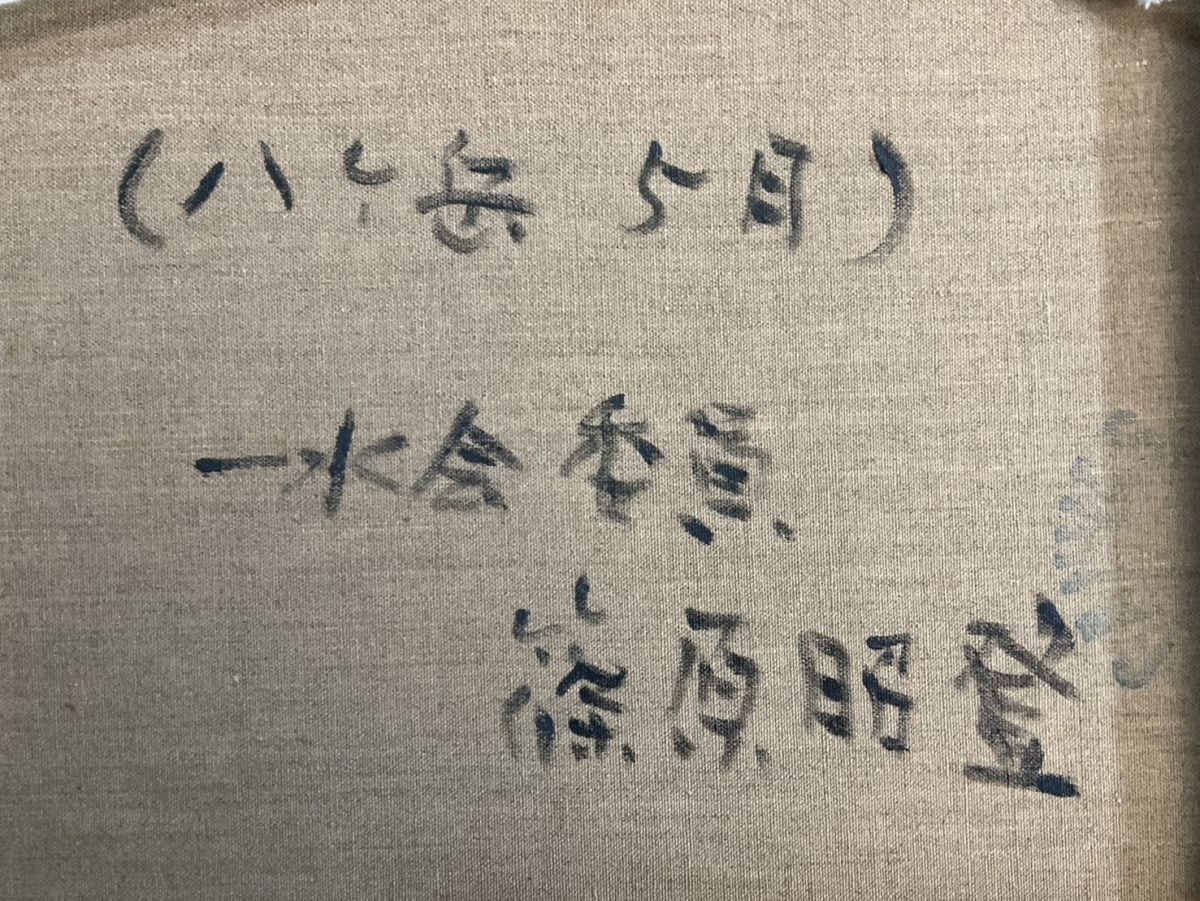 (八ケ岳 5月)
一水会委員
篠原昭登